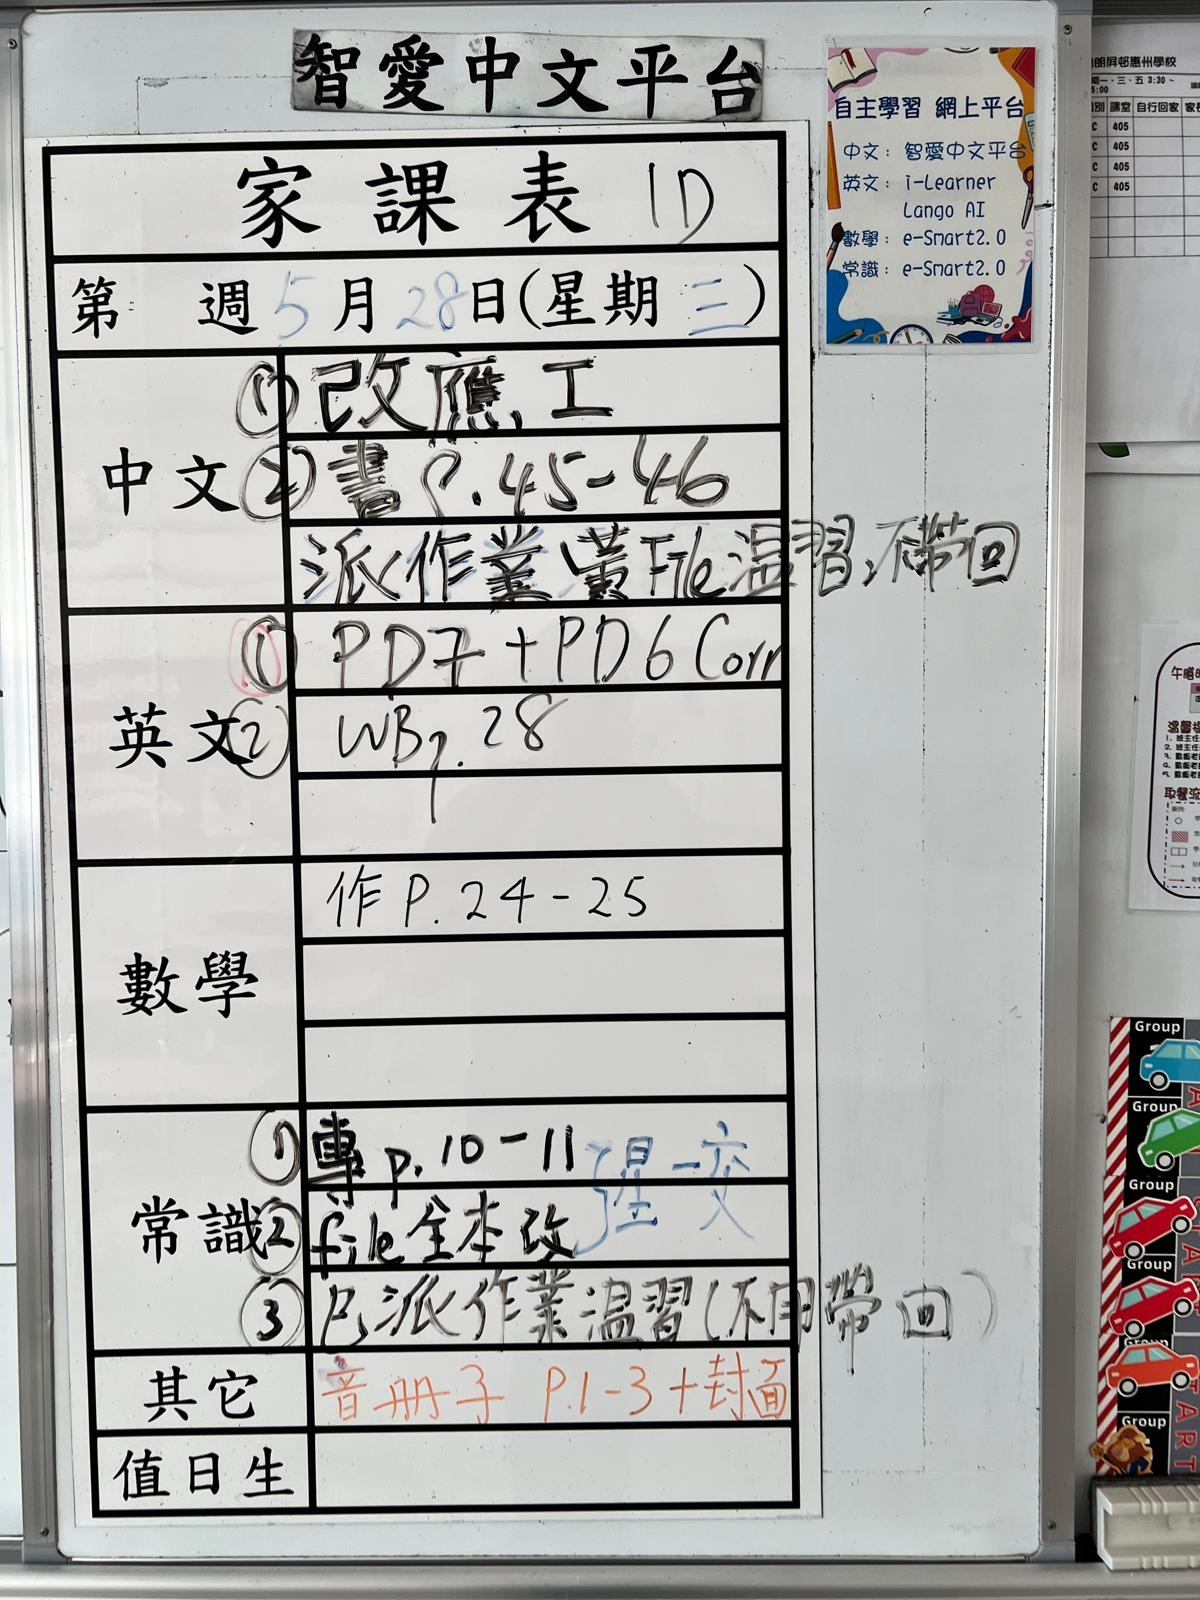 智愛中文平台
家課表 1D
第 週 5月28日(星期三)
中文
① 改應工
② 書 P.45-46
派作業 File温習,不帶回
英文
① PD7 + PD6 Corr
② WB p.28
數學
作 P.24-25
常識
① 專 p.10-11 星一交
② file全本改
③ 已派作業温習(不用帶回)
其它
音册子 P.1-3+封面
值日生
自主學習 網上平台
中文：智愛中文平台
英文：i-Learner
Lango AI
數學：e-Smart2.0
常識：e-Smart2.0
朗屏邨惠州學校
期一、三、五 3:30 ~
5:00
別 課室 自行回家
C 405
C 405
C 405
C 405
午膳
温馨
取餐流
Group
Group
Group
Group
Group
Group
START